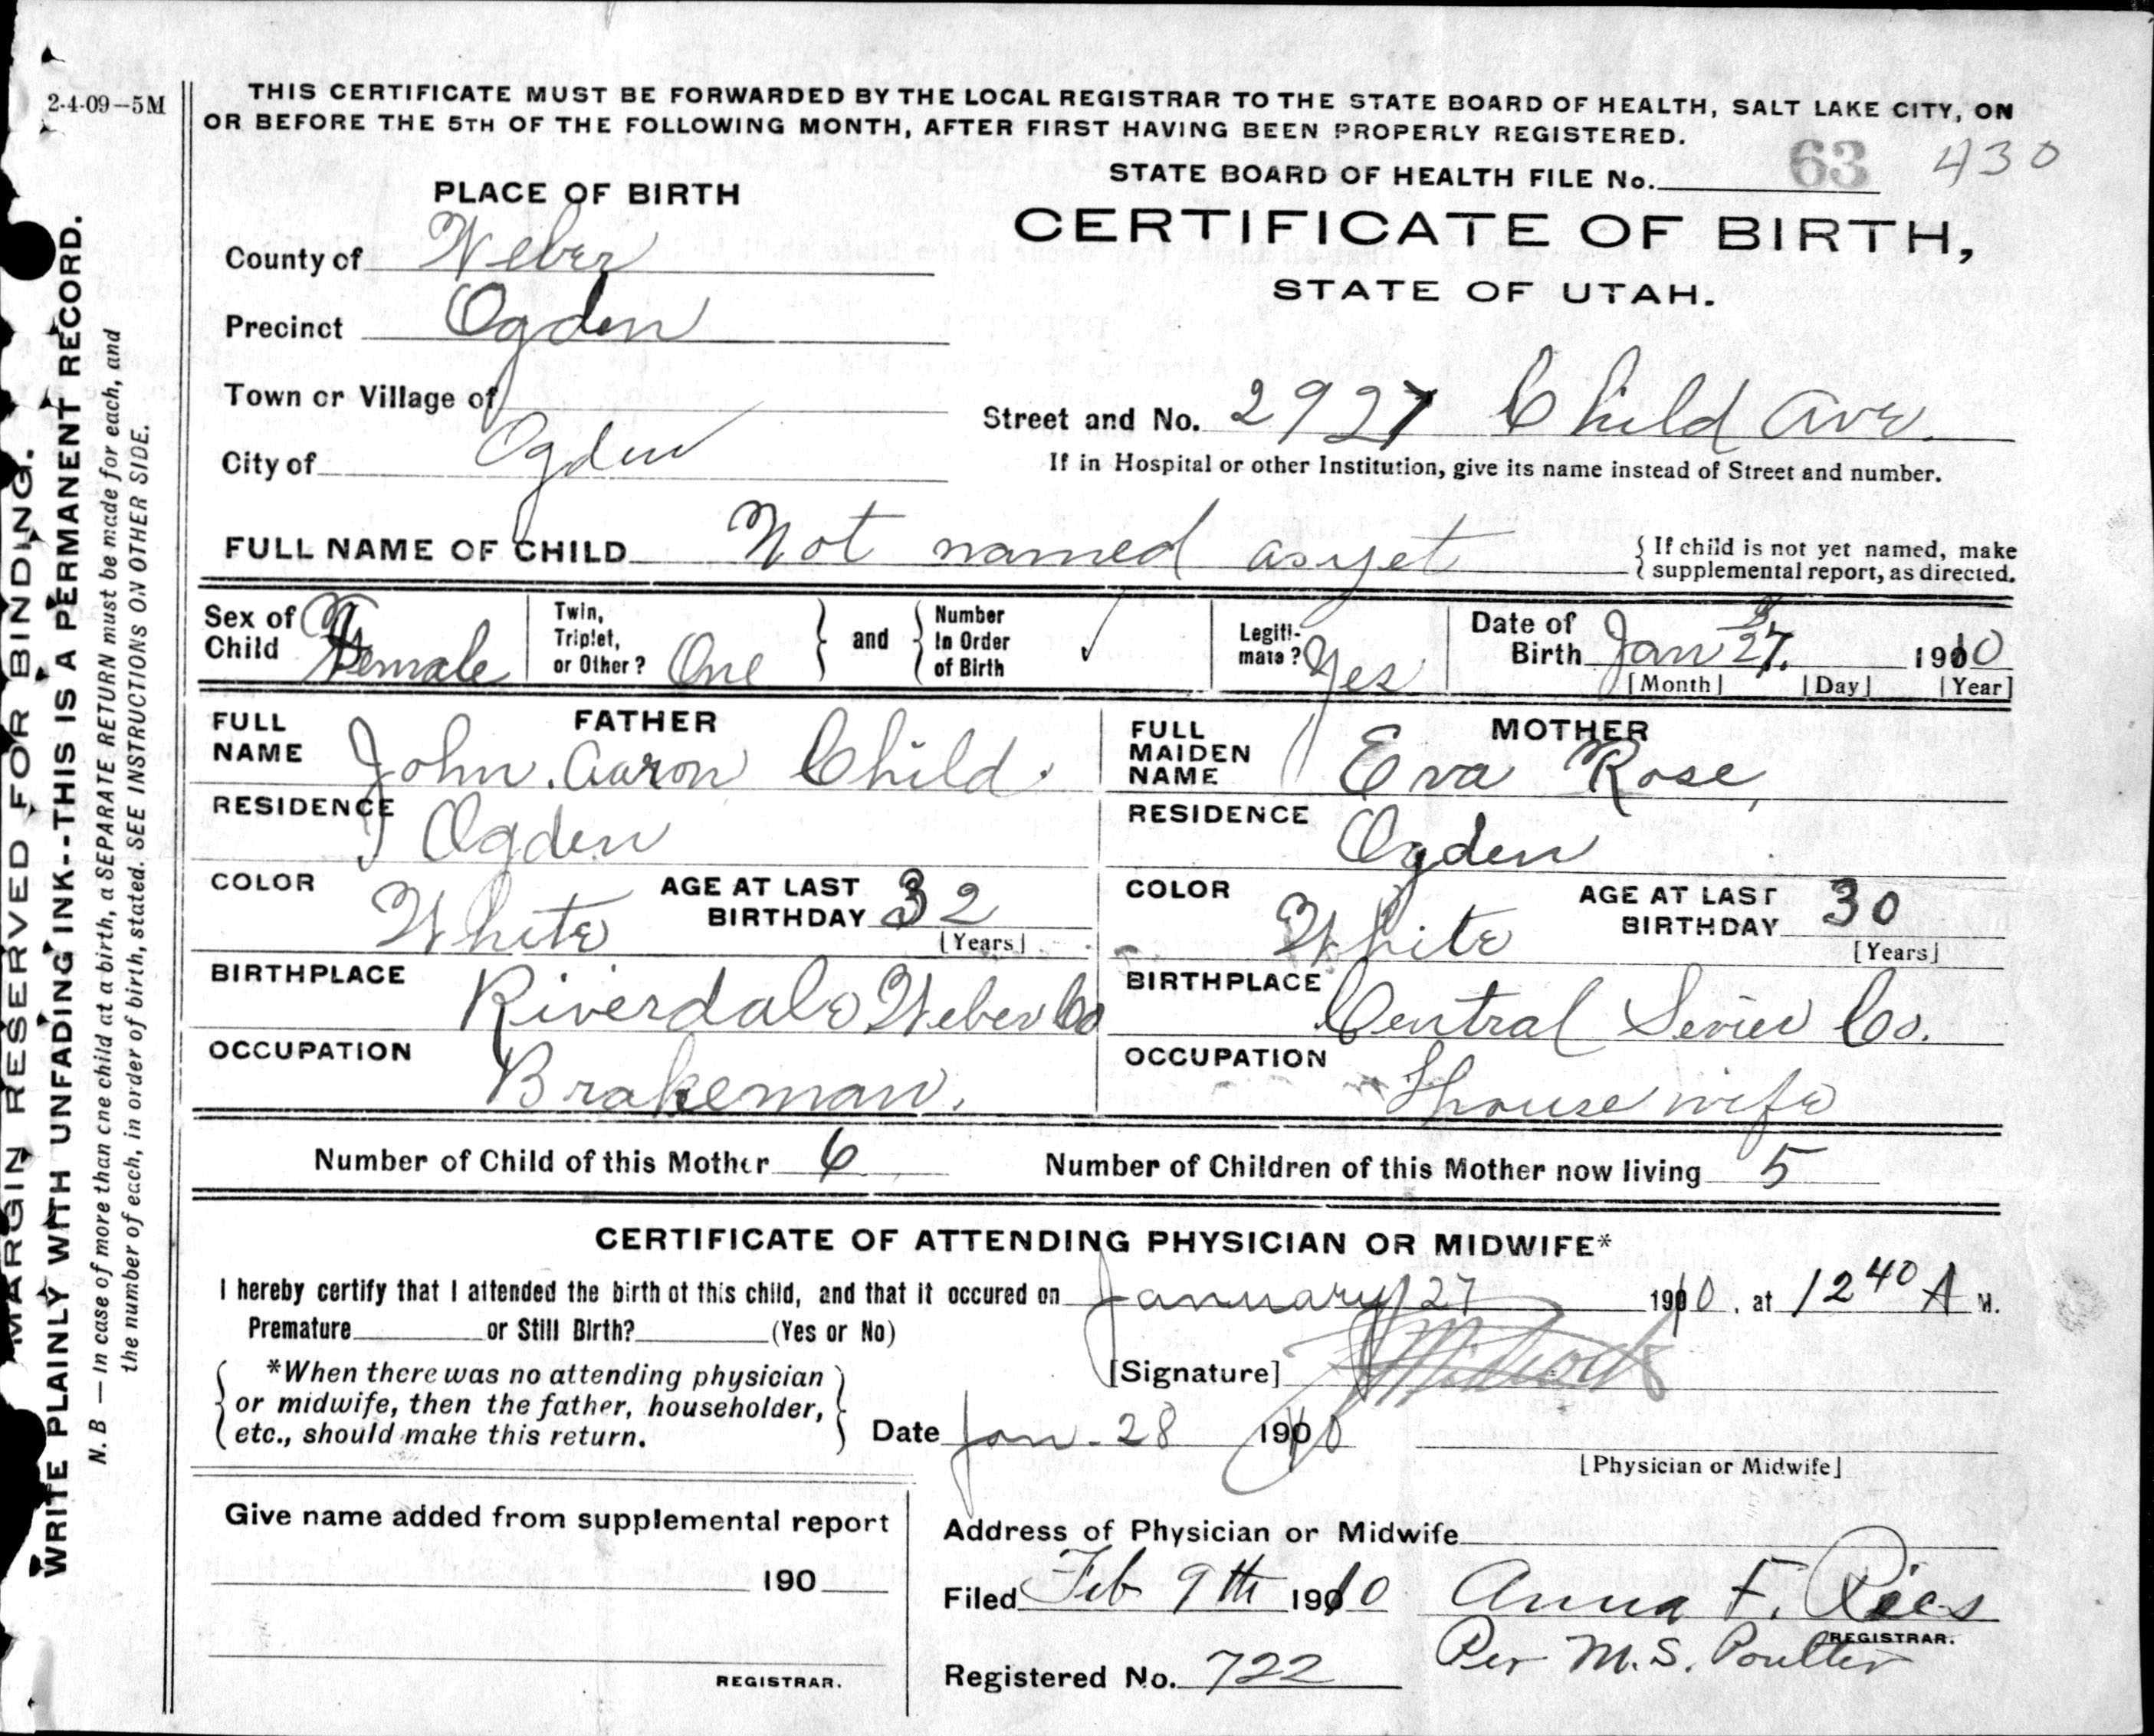 2-4-09-5M
THIS CERTIFICATE MUST BE FORWARDED BY THE LOCAL REGISTRAR TO THE STATE BOARD OF HEALTH, SALT LAKE CITY, ON
OR BEFORE THE 5TH OF THE FOLLOWING MONTH, AFTER FIRST HAVING BEEN PROPERLY REGISTERED.
STATE BOARD OF HEALTH FILE No. 63 430
PLACE OF BIRTH
CERTIFICATE OF BIRTH,
STATE OF UTAH.
County of Weber
Precinct Ogden
Town or Village of
City of Ogden
Street and No. 2927 Child Ave.
If in Hospital or other Institution, give its name instead of Street and number.
FULL NAME OF CHILD Not named as yet
If child is not yet named, make
supplemental report, as directed.
Sex of Child Female
Twin, Triplet, or Other? One
and
Number In Order of Birth ✓
Legiti-mate? Yes
Date of Birth Jan 27. 1910
[Month] [Day] [Year]
FATHER
FULL NAME John. Aaron Child.
RESIDENCE Ogden
COLOR White
AGE AT LAST BIRTHDAY 32
[Years]
BIRTHPLACE Riverdale Weber Co
OCCUPATION Brakeman.
MOTHER
FULL MAIDEN NAME Eva Rose,
RESIDENCE Ogden
COLOR White
AGE AT LAST BIRTHDAY 30
[Years]
BIRTHPLACE Central Sevier Co.
OCCUPATION House wife
Number of Child of this Mother 6
Number of Children of this Mother now living 5
CERTIFICATE OF ATTENDING PHYSICIAN OR MIDWIFE*
I hereby certify that I attended the birth of this child, and that it occured on January 27 1910, at 12 40 A M.
Premature or Still Birth? (Yes or No)
[Signature]
*When there was no attending physician
or midwife, then the father, householder,
etc., should make this return.
Date Jan. 28 1910
[Physician or Midwife]
Give name added from supplemental report
190
REGISTRAR.
Address of Physician or Midwife
Filed Feb 9th 1910 Anna F.
REGISTRAR.
Per M.S. Poulter
Registered No. 722
MARGIN RESERVED FOR BINDING.
WRITE PLAINLY WITH UNFADING INK--THIS IS A PERMANENT RECORD.
N. B — In case of more than one child at a birth, a SEPARATE RETURN must be made for each, and
the number of each, in order of birth, stated. SEE INSTRUCTIONS ON OTHER SIDE.